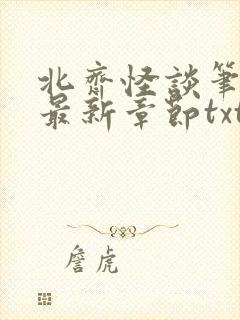 北齋怪談筆
最新章節txt
詹虎